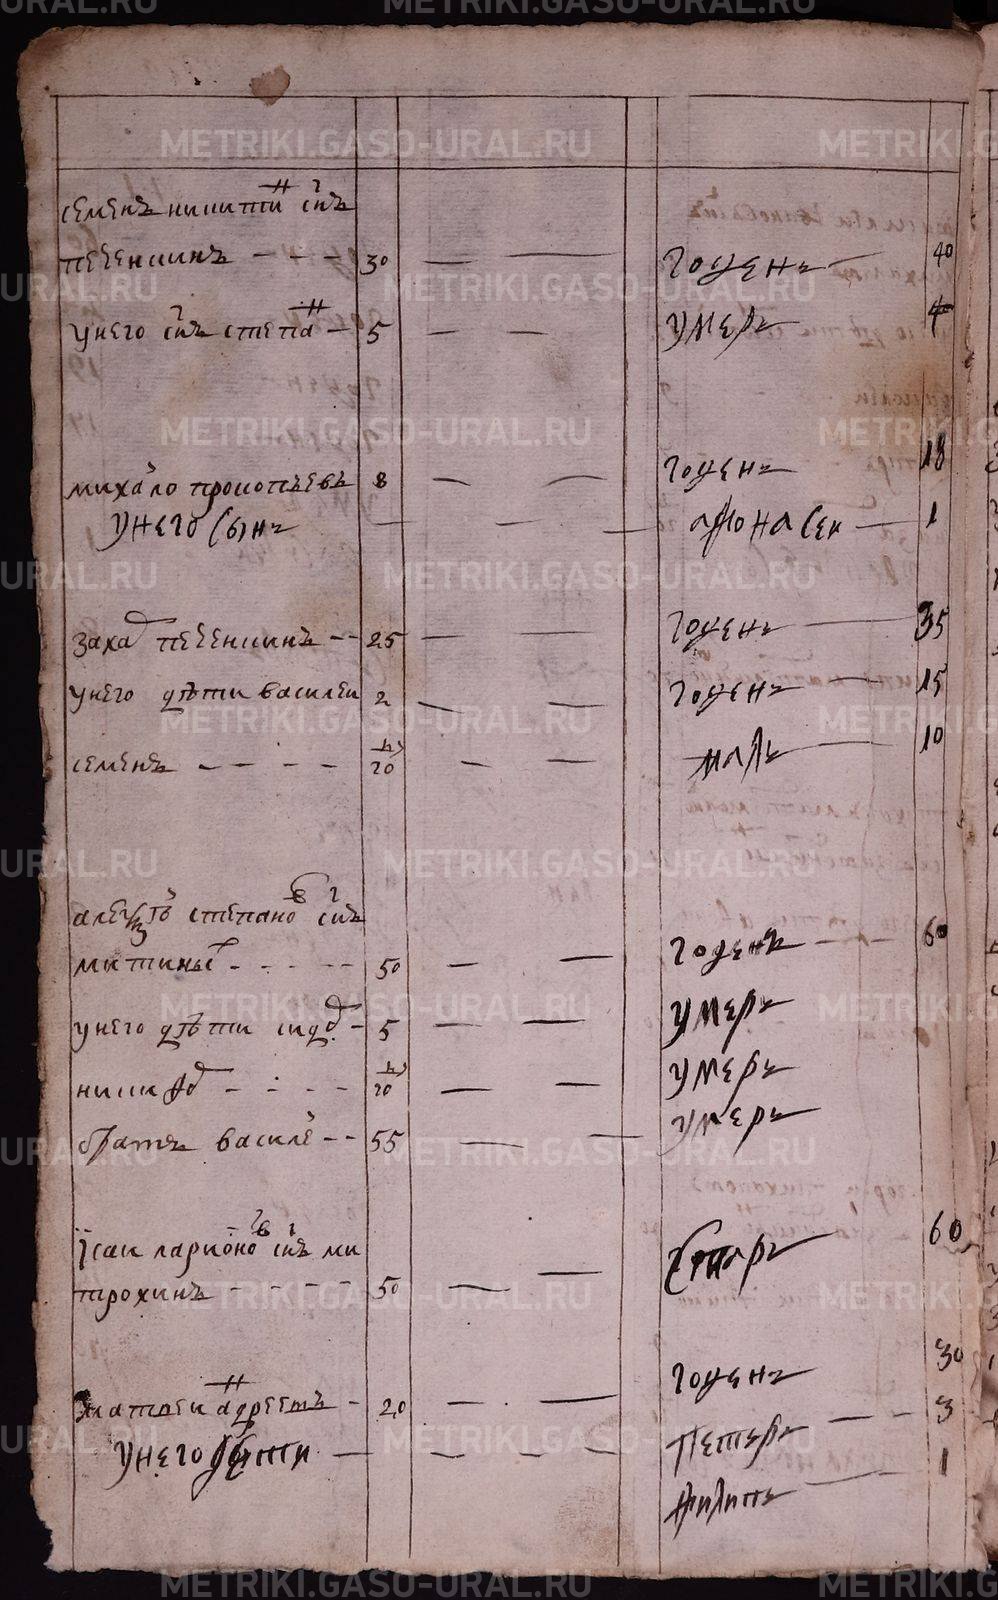 семенъ никитин снъ
печенкинъ - - - 30 — — годенъ — 40
у него снъ степан - 5 — — умеръ 4
михаило прокопьевъ 8 — — годенъ 18
у него сынъ — — — афонасеи — 1
захар печенкинъ - - 25 — — годенъ — 35
у него дѣти василеи 2 — — годенъ — 15
семенъ - - - - 20 — — малъ — 10
степанов снъ
митиных - - - - 50 — — годенъ - - 60
у него дѣти сидор - 5 — — умеръ
никифор - - - - 20 — — умеръ
братъ василеи - - 55 — — умеръ
їсаи ларионов снъ ми
трохинъ - - - - 50 — — старъ 60
матвеи андреевъ - 20 — — годенъ 30
у него дѣти — — — — петеръ — — 3
филипъ — 1
METRIKI.GASO-URAL.RU